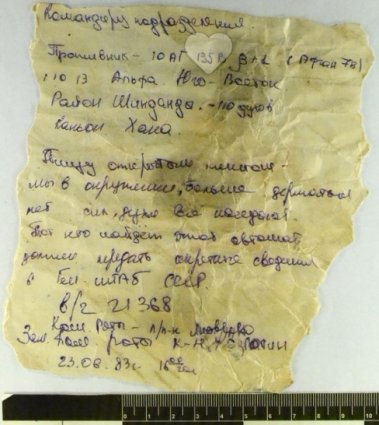 Командиру подразделения
Противник - 10 АГ 135 В β+2 (Афган 78)
1 10 13 Альфа Юго-Восток
Район Шинданда. - 110 духов
Каньон Хака
Пишу открытым текстом -
мы в окружении, больше держаться
нет сил, духи все наседают
Тот кто найдёт этот автомат
должен передать секретные сведения
в Ген. штаб СССР
в/г 21368
Ком. Роты - п/п-к
Зам. Ком роты к-н
23.08.83г. 16
0 1 2 3 4 5 6 7 8 9 10